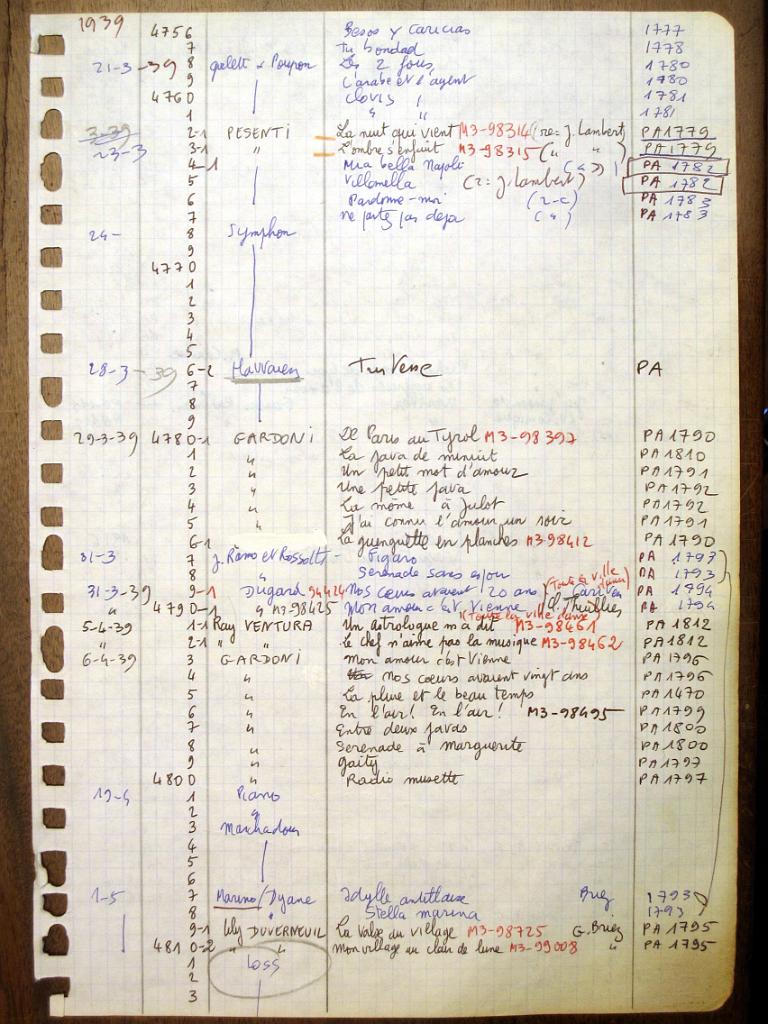 1939 4756 Besos y caricias 1777
7 Tu bondad 1778
21-3-39 8 Les 2 1780
9 L'arabe et l'agent 1780
4760 Clovis 1781
1 " " 1781
23-3 2-1 PESENTI La nuit qui vient M3-98314 (re= J. Lambert) PA1779
3-1 " L'ombre s'enfuit M3-98315 (" ") PA1779
4-1 Mia bella Napoli PA 1782
5 Villanella (r= J. Lambert) PA 1782
6 Pardonne-moi (r-c) PA 1783
7 ne partez pas deja (") PA 1783
24- 8 Symphon
9
4770
1
2
3
4
5
28-3-39 6-2 PA
7
8
9
29-3-39 4780-1 GARDONI De Paris au Tyrol M3-98397 PA1790
1 " La java de minuit PA1810
2 " Un petit mot d'amour PA1791
3 " Une petite java PA1792
4 " La môme à Julot PA1792
5 " J'ai connu l'amour un soir PA1791
6-1 La guinguette en planches M3-98412 PA1790
31-3 7 J. Ramo et Rossotti - Figaro PA 1793
8 " Serenade sans espoir PA 1793
31-3-39 9-1 Dugard 94424 Nos coeurs avaient 20 ans (Toute la ville danse) PA 1794
" 4790-1 " M3-98425 Mon amour c'est Vienne (Toute la ville danse) PA 1794
5-4-39 1-1 Ray VENTURA Un astrologue m'a dit M3-98461 PA1812
" 2-1 " Le chef n'aime pas la musique M3-98462 PA1812
6-4-39 3 GARDONI Mon amour c'est Vienne PA1796
4 " Nos coeurs avaient vingt ans PA1796
5 " La pluie et le beau temps PA1470
6 " En l'air! En l'air! M3-98495 PA1799
7 " Entre deux javas PA1800
8 " Serenade à marguerite PA1800
9 " Gaity PA1797
4800 " Radio musette PA1797
19-4 1 Piano
2 "
3 Machadou
4
5
6
1-5 7 Marino/Dyane Idylle antillaise Briez 1793
8 " Stella marina 1793
9-1 Lily DUVERNEUIL La Valse du village M3-98725 G. Briez PA1795
4810-2 " " Mon village au clair de lune M3-99008 " PA1795
1 LOSS
2
3